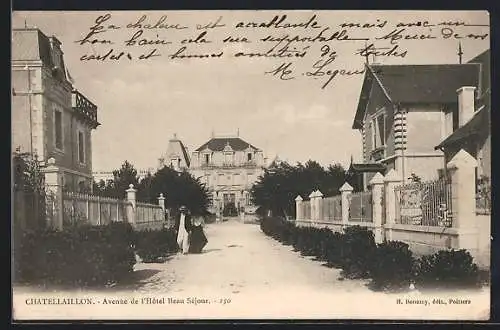 La chaleur est accablante mais avec un
bon bain cela sera supportable Merci de vos
cartes et bonnes amitiés de toutes
M. Legeay
CHATELLAILLON. - Avenue de l'Hôtel Beau Séjour. - 150
H. Denancy, édit., Poitiers